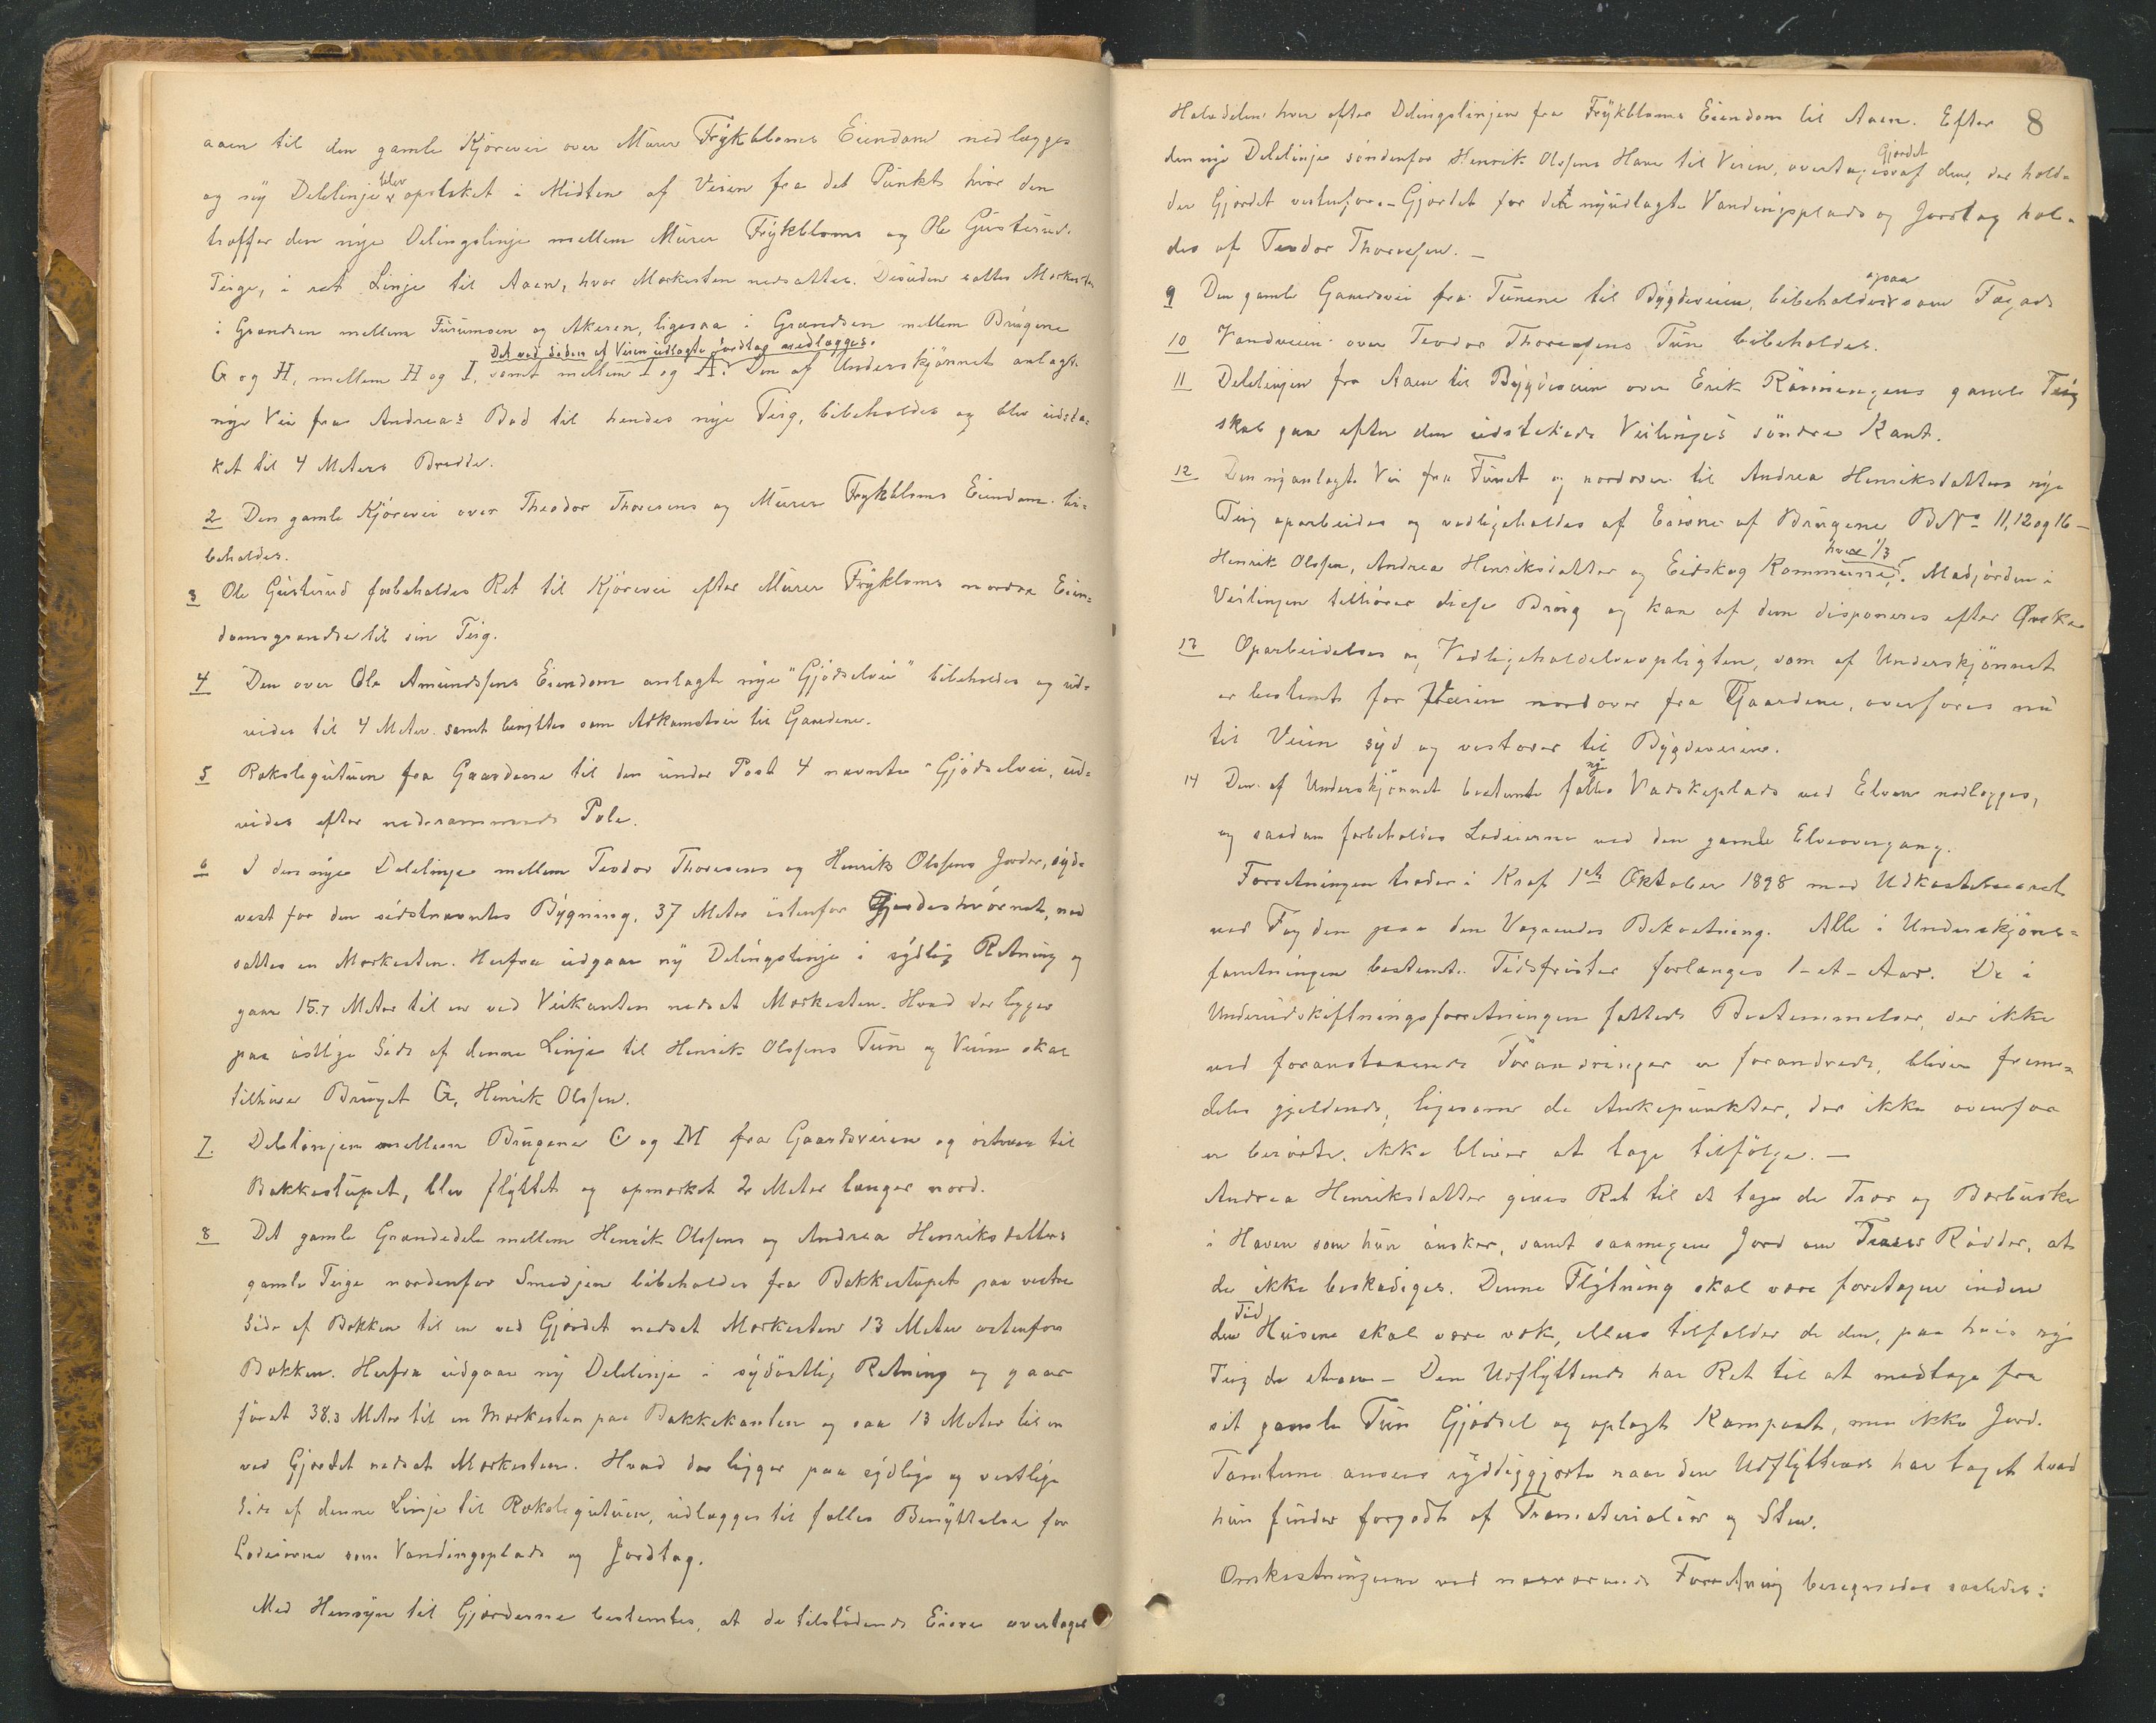 aaen til den gamle Kjörevei over Murer Frykbloms Eiendom nedlægges
og ny Delelinje blev opstaket i Midten af Veien fra det Punkt, hvor den
træffer den nye Delingslinje mellem Murer Frykbloms og Ole Gusterud.
Teige, i ret Linje til Aaen, hvor Merkesten nedsattes. Desuden sattes Merkesten
i Grændsen mellem Furumoen og Akeren, ligesaa i Grændsen mellem Brugene
Det ved siden af Veien udlagte Jordtag nedlægges.
G og H, mellem H og I, samt mellem I og A. Den af Underskjønnet anlagte
nye Vei fra Andreas Bod til hendes nye Teig, bibeholdes og blev udsta=
ket til 4 Meters Bredde.
2 Den gamle Kjörevei over Theodor Thoresens og Murer Frykbloms Eiendom bi=
beholdes.
3 Ole Gusterud forbeholdes Ret til Kjörevei efter Murer Frykbloms nordre Eien=
domsgrændse til sin Teig.
4 Den over Ole Amundsens Eiendom anlagte nye "Gjödselvei" bibeholdes og ud=
vides til 4 Meter samt benyttes som Adkomstvei til Gaardene.
5 Rækslegutuen fra Gaardene til den under Post 4 nævnte "Gjödselvei, ud=
vides efter nedrammede Pæle.
6 I den nye Delelinje mellem Teodor Thoresens og Henrik Olsens Jorder, syd=
vest for den sidstnævntes Bygning, 37 Meter östenfor Gjerdeshjörnet, ned
sattes en Merkesten. Herfra udgaar ny Delingslinje i sydlig Retning og
gaar 15.7 Meter til en ved Veikanten nedsat Merkesten. Hvad der ligger
paa östlige Side af denne Linje til Henrik Olsens Tun og Veien skal
tilhöre Bruget G, Henrik Olsen.
7. Delelinjen mellem Brugene C og M fra Gaardsveien og östover til
Bakkestupet, blev flyttet og opmerket 2 Meter længer nord.
8 Det gamle Grændedele mellem Henrik Olsens og Andrea Henriksdatters
gamle Teige nordenfor Smedjen bibeholdes fra Bakkestupet paa vestre
Side af Bækken til en ved Gjerdet nedsat Merkesten 13 Meter östenfor
Bækken. Herfra udgaar ny Delelinje i sydöstlig Retning og gaar
först 38.3 Meter til en Merkesten paa Bakkekanten og saa 13 Meter til en
ved Gjerdet nedsat Merkesten. Hvad der ligger paa sydlige og vestlige
Side af denne Linje til Rækslegutuen, udlægges til fælles Benyttelse for
Lodeierne som Vandingsplads og Jordtag.
Med Hensyn til Gjerderne bestemtes, at de tilstödende Eiere overtager
8
Halvdelen hver efter Delingslinjen fra Frykbloms Eiendom til Aaen. Efter
den nye Delelinje söndenfor Henrik Olsens Have til Veien, overtages Gjerdet af den, der hold=
der Gjerdet vestenfor. - Gjerdet for det nyudlagte Vandingsplads og Jordtag hol=
des af Teodor Thoresen. -
9 Den gamle Gaardsvei fra Tunene til Bygdeveien, bibeholdes ogsaa som Fægade
10 Vandveien over Teodor Thoresens Tun bibeholdes.
11 Delelinjen fra Aaen til Bygdeveien over Erik Rönningens gamle Teig
skal gaa efter den udstakede Veilinjes söndre Kant.
12 Den nyanlagte Vei fra Tunet og nordover til Andrea Henriksdatters nye
Teig oparbeides og vedligeholdes af Eierne af Brugene BNo 11, 12 og 16 -
Henrik Olsen, Andrea Henriksdatter og Eidskog Kommune, hver 1/3. Madjorden i
Veilinjen tilhörer disse Brug og kan af dem disponeres efter Önske
13 Oparbeidelses og Vedligeholdelsespligten, som af Underskjönnet
er bestemt for Veien nordover fra Gaardene, overföres nu
til Veien syd og vestover til Bygdeveien.
14 Den af Underskjönnet bestemte fælles nye Vadskeplads ved Elven nedlægges,
og saadan forbeholdes Lodeierne ved den gamle Elveovergang.
Forretningen træder i Kraft 1ste Oktober 1898 med Udkastelsesret
ved Fogden paa den Vægrendes Bekostning. Alle i Underskjöns=
forretningen bestemte Tidsfrister forlænges 1 - et - Aar. De i
Underudskiftningsforretningen fattede Bestemmelser, der ikke
ved foranstaaende Forandringer er forandrede, bliver frem=
deles gjeldende, ligesom de Ankepunkter, der ikke ovenfor
er berörte, ikke bliver at tage tilfölge. -
Andrea Henriksdatter gives Ret til at tage de Trær og Bærbuske
i Haven som hun önsker, samt saamegen Jord om Rödder, at
de ikke beskadiges. Denne Flytning skal være foretagen inden
den Tid Husene skal være væk, ellers tilfalder de den, paa hvis nye
Teig de staar - Den Udflyttende har Ret til at medtage fra
sit gamle Tun Gjödsel og oplagt Kompost, men ikke Jord.
Tomterne ansees ryddiggjorte naar den Udflyttende har taget hvad
hun finder forgodt af Træmaterialier og Sten.
Omkostningerne ved nærværende Forretning beregnedes saaledes: